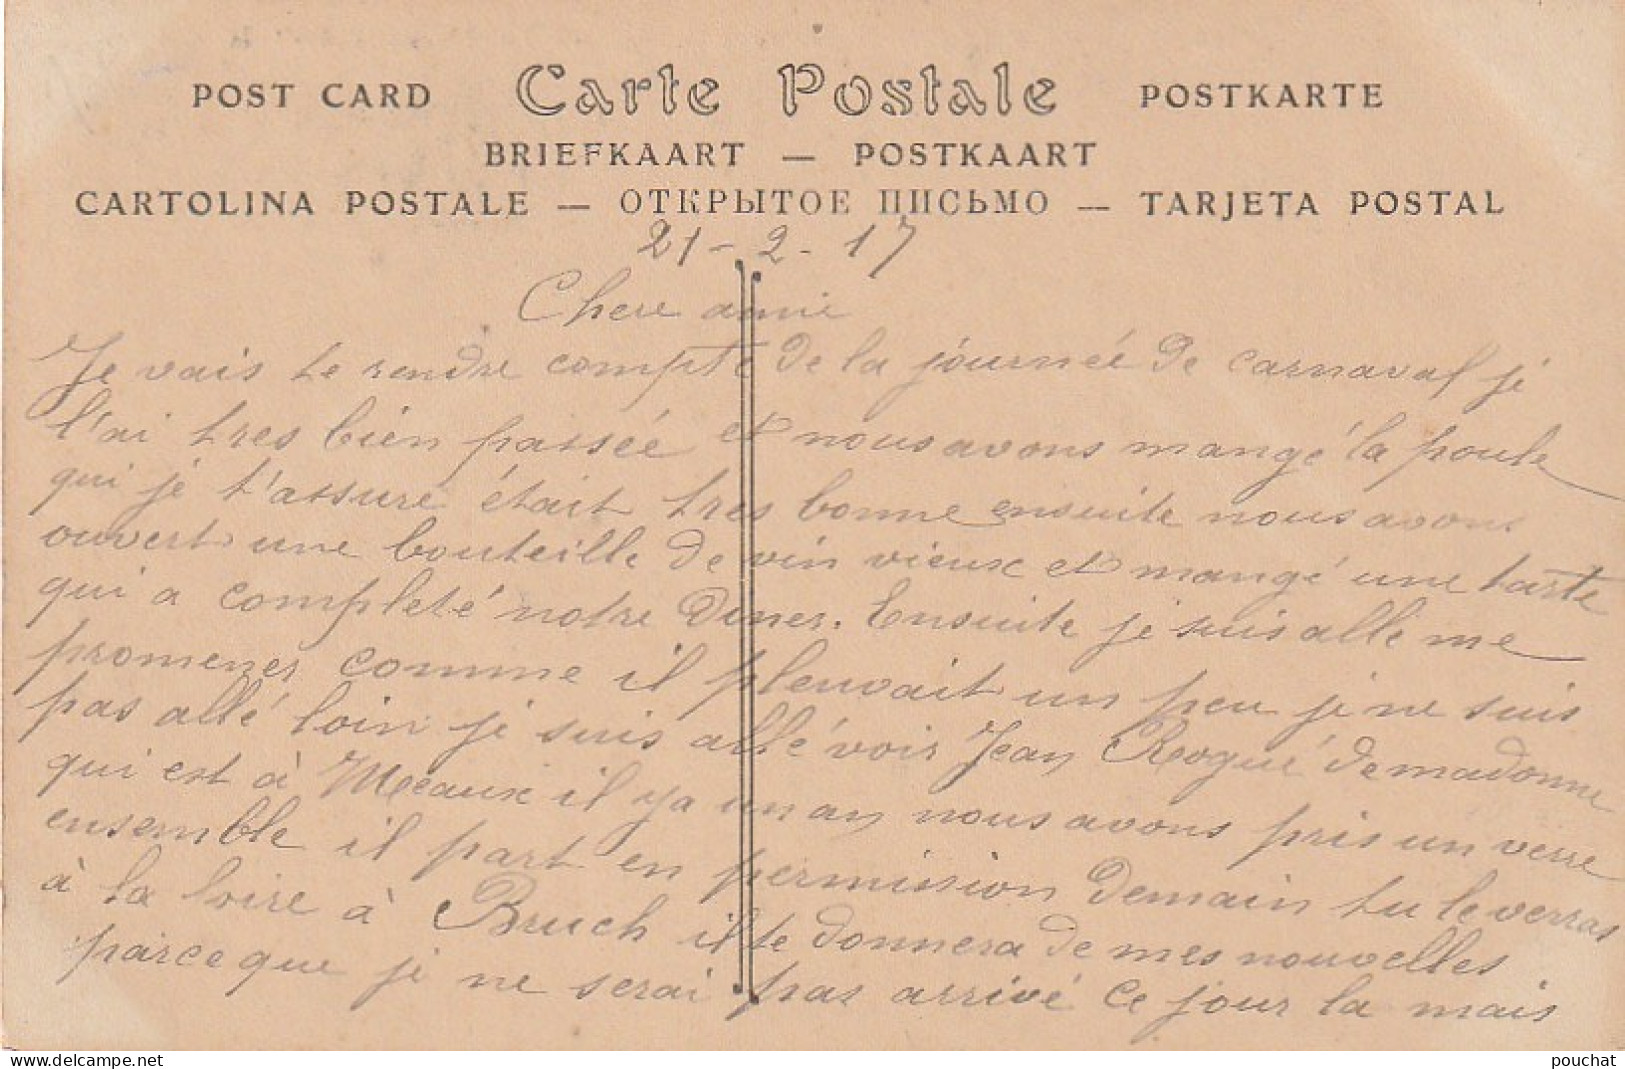 POST CARD Carte Postale POSTKARTE
BRIEFKAART — POSTKAART
CARTOLINA POSTALE — ОТКРЫТОЕ ПИСЬМО — TARJETA POSTAL
21-2-17
Chere amie
Je vais te rendre compte de la journée de carnaval je
l'ai tres bien passée et nous avons mangé la poule
qui je t'assure était tres bonne ensuite nous avons
ouvert une bouteille de vin vieux et mangé une tarte
qui a completé notre diner. Ensuite je suis allé me
promener comme il pleuvait un peu je ne suis
pas allé loin je suis allé voir Jean Rogué de madonne
qui est à Meaux il y a un an nous avons pris un verre
ensemble il part en permission demain tu le verras
à la loire à Bruch il te donnera de mes nouvelles
parce que je ne serai pas arrivé ce jour la mais
pouchat